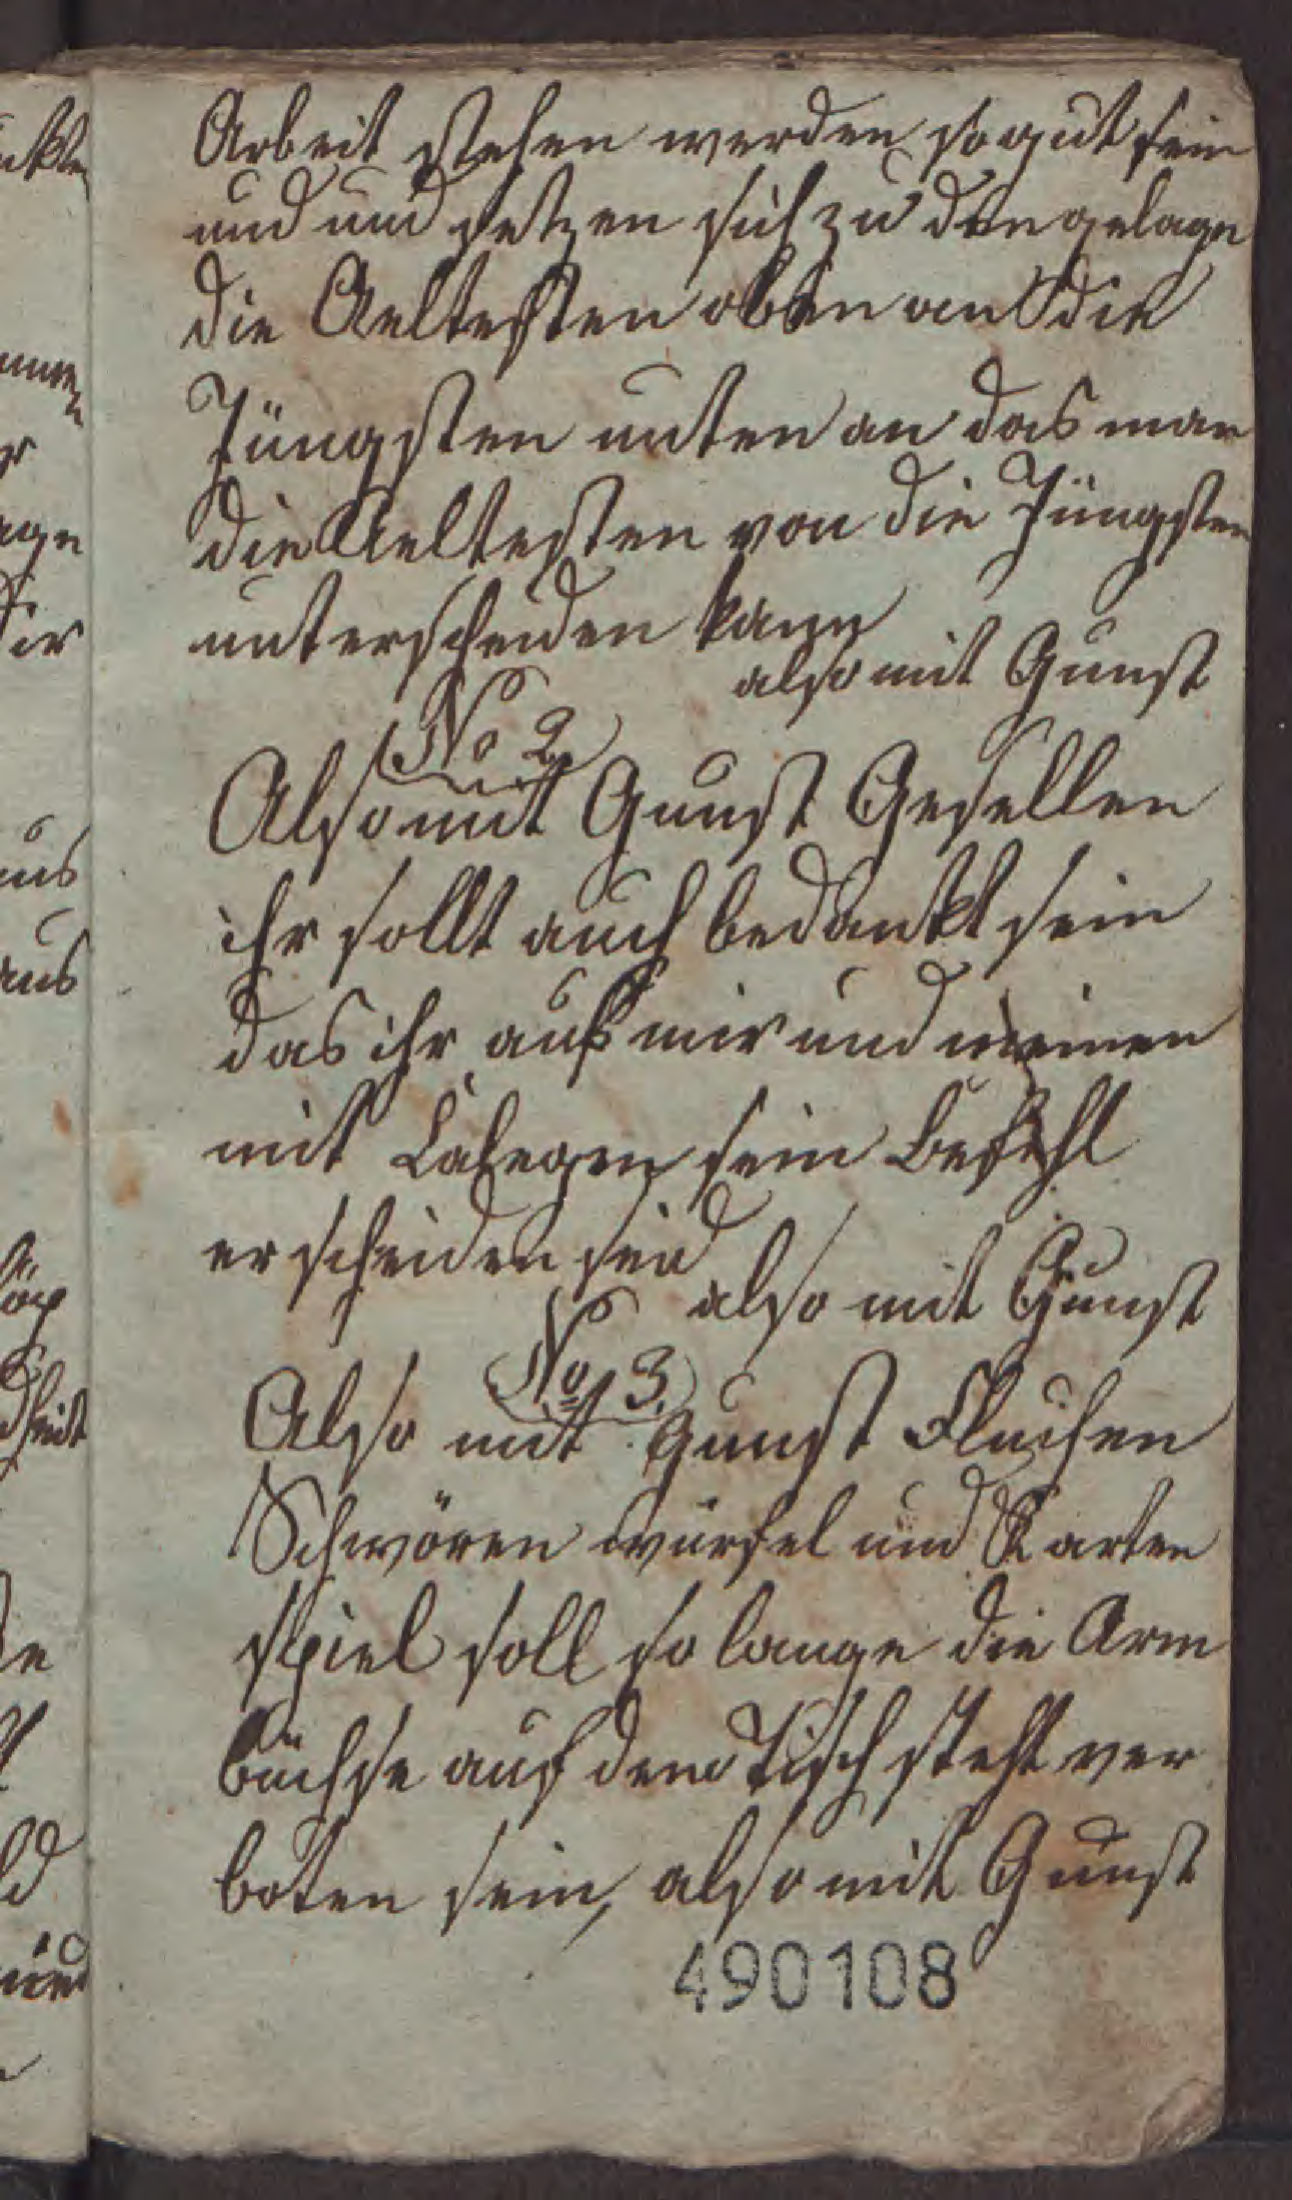 Arbeit stehen werden so gut sein
und und setzen sich zu den gelage
die Aeltesten oben an die
Jüngsten unten an das man
die Aeltesten von die Jüngsten
unterscheiden kann
also mit Gunst
No 2
Also mit Gunst Gesellen
ihr sollt auch bedankt sein
das ihr auf mir und meinen
mit Calegen sein Befehl
erscheiden seid
also mit Gunst
No 3.
Also mit Gunst Fluchen
Schwören würfel und Karten
spiel soll so lange die Arm
büchse auf dem Tisch steht ver
boten sein, also mit Gunst
490108